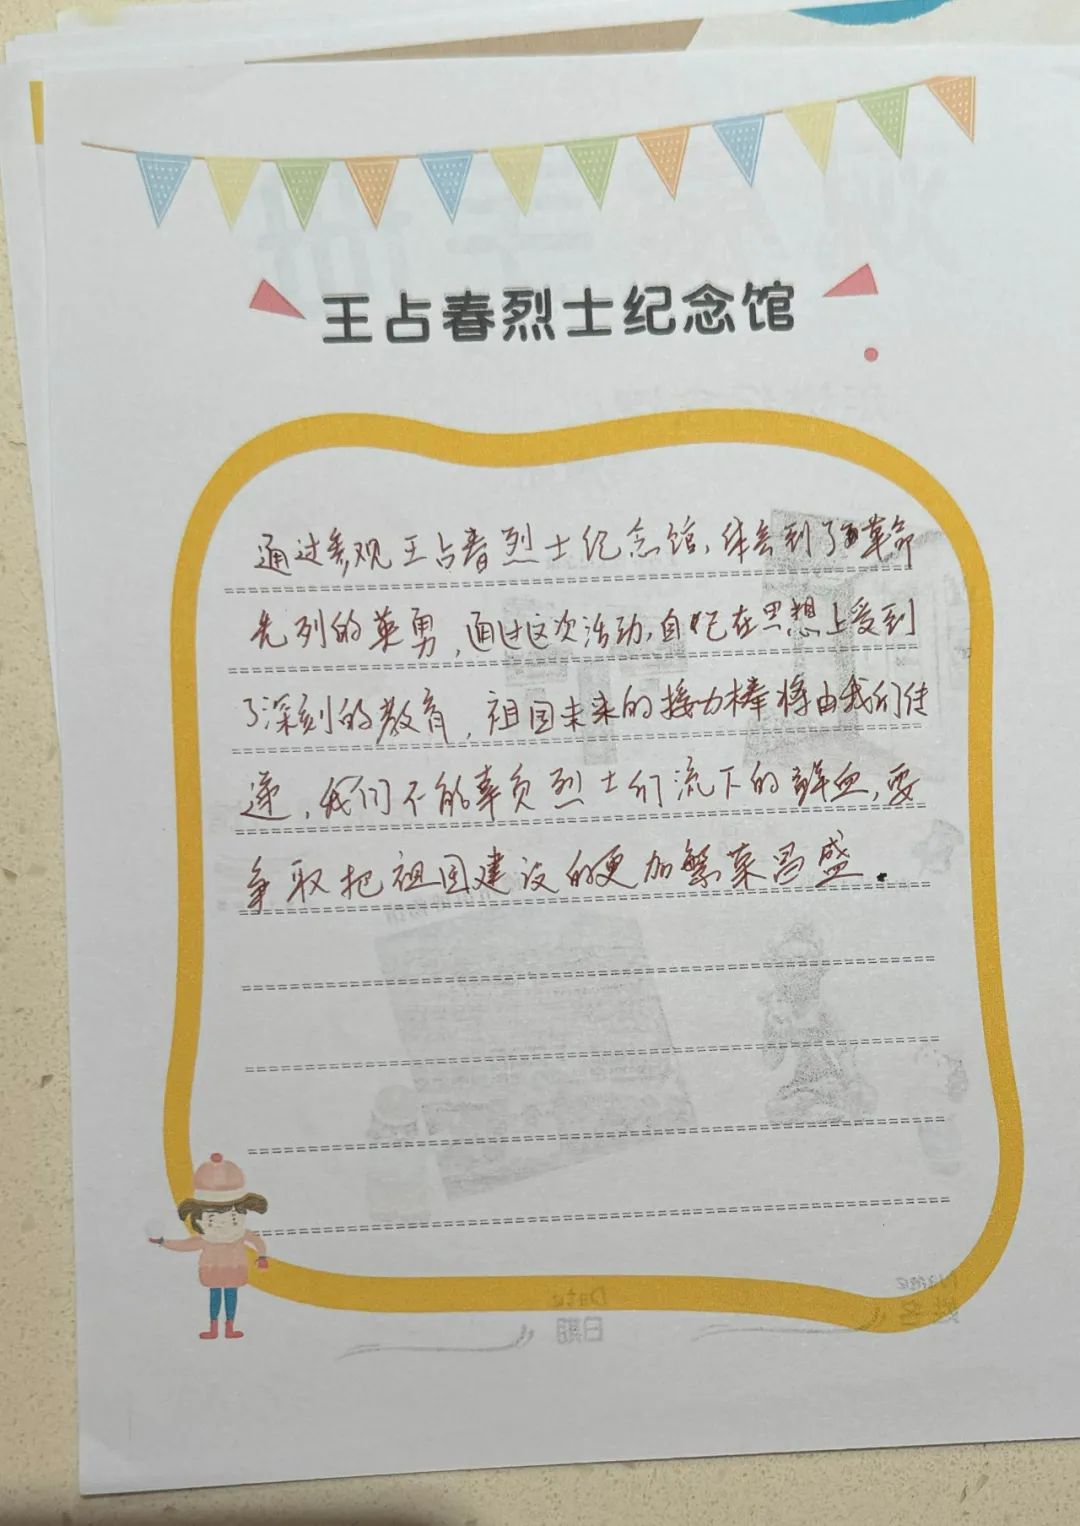 王占春烈士纪念馆
通过参观王占春烈士纪念馆,体会到了革命
先列的英勇,通过这次活动,自己在思想上受到
了深刻的教育,祖国未来的接力棒将由我们传
递,我们不能辜负烈士们流下的鲜血,要
争取把祖国建设的更加繁荣昌盛.
Date
日期
姓名